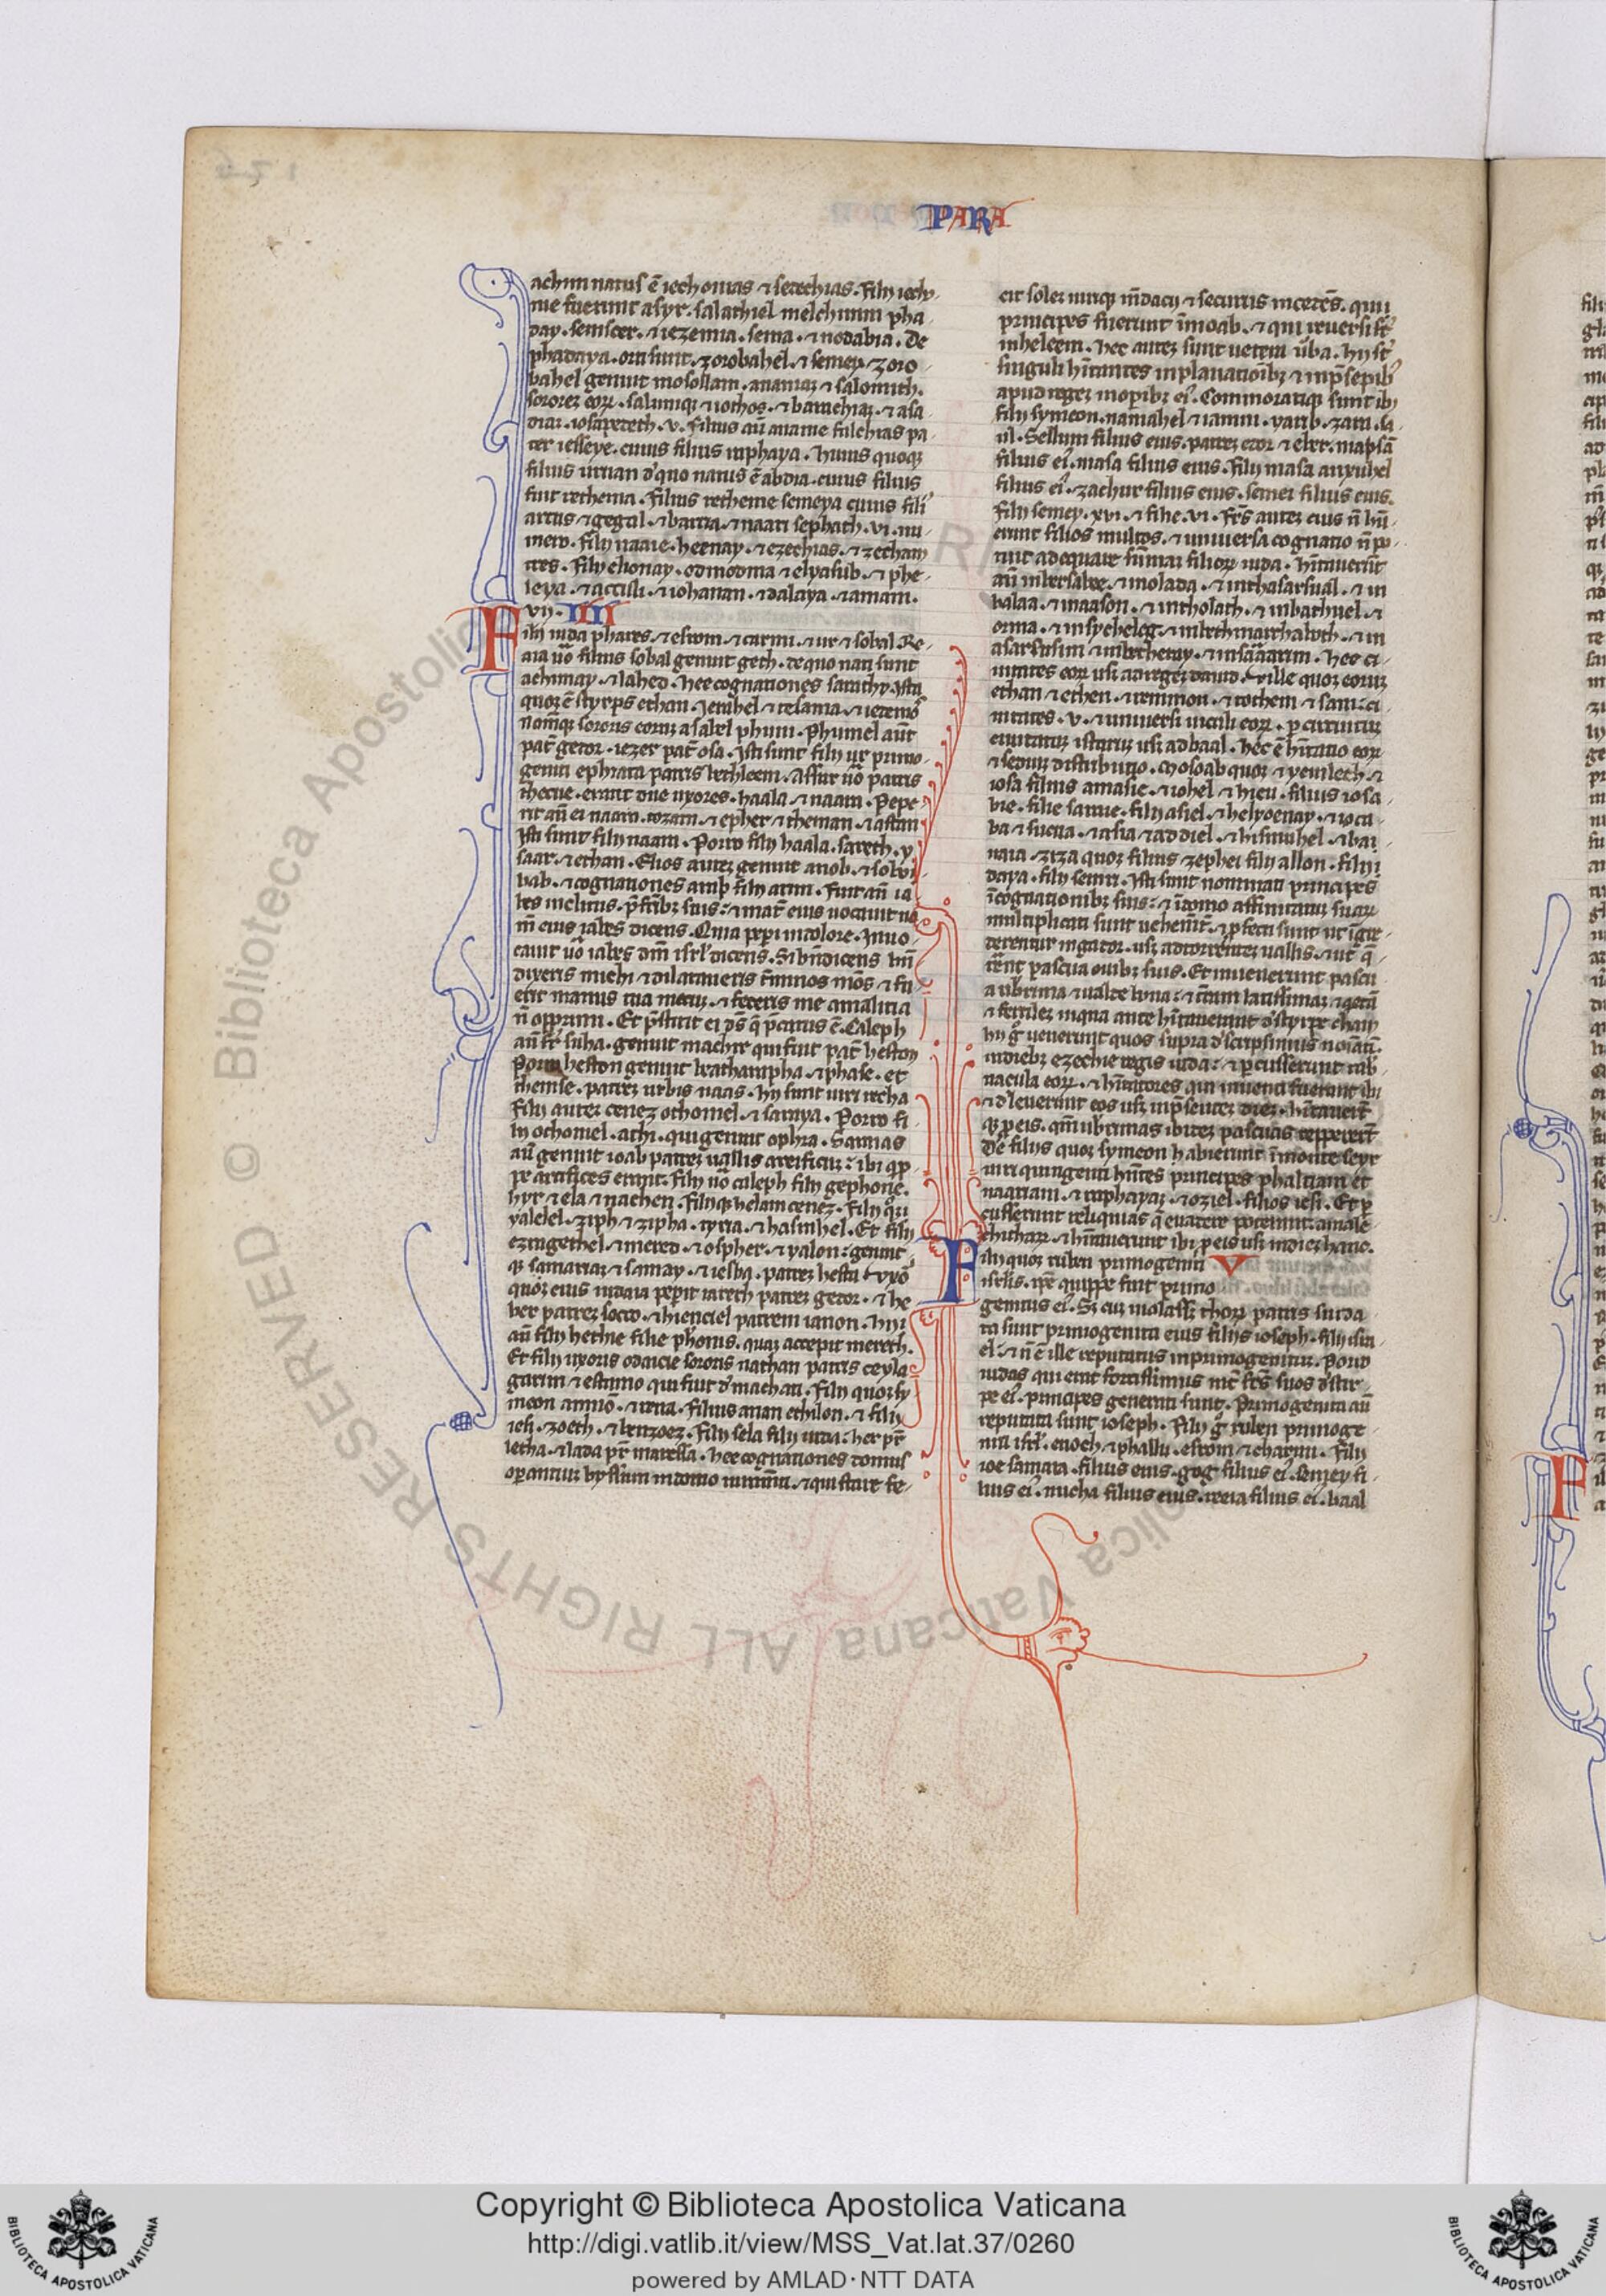 PARA
achim natus ē iechonias ⁊ setechias. Filij iecho
nie fuerunt asyr. salathiel melchiram pha
day. semser. ⁊ iezemia. sema. ⁊ nodabia. De
phadaya. orti sunt. zorobahel. ⁊ semey. zoro
bahel genuit mosollam. ananiaȝ ⁊ salomith.
sororeȝ eoꝝ. salumiqȝ ⁊ iothos. ⁊ barachiaȝ. ⁊ asa
diaȝ. iosapeteth. v. filius aū ananie falchias pa
ter iesseye. cuius filius raphaya. huius quoqȝ
filius urnan d'quo natus ē abdia. cuius filius
fuit rethenia. filius rethenie semeya cuius fili'
artus ⁊ gegal. ⁊ baria. ⁊ naari sephath. vi. nu
mero. filij naarie. heenay. ⁊ ezechias. ⁊ zecham
tres. filij elionay. odmodma ⁊ elyasub. ⁊ phe
leya. ⁊ accusi. ⁊ iohanan. ⁊ dalaya ⁊ anam.
vij. IIII
Filij iuda phares. ⁊ esrom. ⁊ carmi. ⁊ ur ⁊ sobal Re
aia ũo filius sobal genuit geth. de quo nati sunt
achimay. ⁊ lahed. hee cognationes sarathy. Ista
quoȝ ē styrps ethan. Iezrahel ⁊ iesama. ⁊ iedemo'
nomēqȝ sororis eorum asalel phuni. Phumel aūt
pat̄ gedor. iezer pat̄ osa. Isti sunt filij ur primo
geniti ephrata patris bethleem. Assur ũo patris
thecue. erant due uxores. haala ⁊ naara. Pepe
rit aū ei naara. ozam. ⁊ epher ⁊ theman ⁊ astari
Isti sunt filij naara. Porro filij haala. sareth. y
saar. ⁊ ethan. Elios auteȝ genuit anob. ⁊ sobi
bab. ⁊ cognationes arab filij arim. Fuit aū ia
bes inclitus. p̄ fr̄ibȝ suis: ⁊ mat̄ eius uocauit no
m̄ eius iabes dicens. Quia peperi in dolore. Inuo
cauit ũo iabes dm̄ isrl' dicens. Si bn̄dicens bn̄
dixeris michi ⁊ dilataueris t̄minos m̄os ⁊ fu
erit manus tua mecuȝ. ⁊ feceris me a malitia
n̄ opprimi. Et p̄stitit ei ds̄ q̄ p̄catus ē. Caleph
aū fr̄ suha. genuit machir qui fuit pat̄ heston
Porro heston genuit bethrapha. ⁊ phase. et
thense. patreȝ urbis naas. hij sunt uiri recha
filij auteȝ ceneȝ othoniel. ⁊ saraya. Porro fi
lij othoniel. athi. qui genuit ophra. Saraias
aū genuit ioab patreȝ uallis artificuȝ: ibi qp̄
pe artifices erant. filij ũo caleph filij gephone.
hyr ⁊ ela ⁊ nachen. filijqȝ helam ceneȝ. filij qȝ
yalelel. ziph ⁊ zipha. tyria. ⁊ hasrahel. Et filij
ezra gethel ⁊ mered ⁊ ospher. ⁊ yalon: genuit
qȝ samariaȝ ⁊ samay. ⁊ iesba. patreȝ hesta. Vxo'
quoȝ eius iudaia peperit iareth patreȝ gedor. ⁊ he
ber patreȝ socco. ⁊ hienciel patrem ianon. Hij
aū filij bethie filie ph'onis. quaȝ accepit mereth.
Et filij uxoris odaicie sororis nathan patris ceyla
garim ⁊ estamo qui fuit d' machati. filij quoȝ sy
meon amnō. ⁊ rena. filius anan ethilon. ⁊ filij
iesi. zoeth. ⁊ benzoeȝ. filij sela filij iuda: her pr̄
letha. ⁊ lada pr̄ maresa. hee cognationes domus
oꝑantiū byssum in domo iuramēti. ⁊ qui stare fe
cit soleȝ uirqȝ m̄dacij ⁊ securus incedēs. qui
principes fuerunt ī moab. ⁊ qui reuersi st̄
in beleem. hec auteȝ sunt uetera ũba. hij st̄
singuli h̄itantes in plantatiōibȝ ⁊ in p̄sepib'
apud regeȝ in opibȝ ei'. Commoratiqȝ sunt ibi
filij symeon. namahel ⁊ iamin. yarib. zara. sa
ul. Sellum filius eius. patreȝ eȝor ⁊ eler. mapsā
filius ei'. masa filius eius. filij masa amuhel
filius ei'. zachur filius eius. semei filius eius.
filij semey. xvi. ⁊ filie. vi. Fr̄s auteȝ eius n̄ hn̄
erunt filios multos. ⁊ uniuersa cognatio n̄ po
tuit adequare sum̄aȝ filioꝝ iuda. h̄itauerūt
aū in bersabee. ⁊ molada. ⁊ in thasarsual. ⁊ in
balaa. ⁊ in aason. ⁊ in tholath. ⁊ in bathuel. ⁊
orma. ⁊ in sycheleg. ⁊ in bethmarchaboth. ⁊ in
asarsusim ⁊ in betheray. ⁊ in saāarim. hee ci
uitates eoꝝ usqȝ ad regeȝ dauid. Ville quoȝ eorum
ethan ⁊ ethen. ⁊ remmon. ⁊ tochem ⁊ sam: ci
uitates. v. ⁊ uniuersi uiculi eoꝝ. p circuitum
ciuitatuȝ istaruȝ usqȝ ad baal. hec ē h̄itatio eoꝝ
⁊ seduȝ distributio. Mosoab quoȝ ⁊ yemleth. ⁊
iosa filius amasie. ⁊ iohel ⁊ hieu. filius iosa
bie. filie saraie. filij asiel. ⁊ helyoenay. ⁊ iaco
ba ⁊ sucua. ⁊ asia ⁊ addiel. ⁊ hisimihel. ⁊ ba
naia. ziza quoȝ filius zephei filij allon. filij i
daya. filij semri. Isti sunt nominati principes
ī cognationibȝ suis: ⁊ ī domo affinitatuȝ suaꝝ
multiplicati sunt uehem̄t̄. ⁊ p̄fecti sunt ut īgre
derentur in gador. usqȝ ad orienteȝ uallis. ⁊ ut q̄
rerent pascua ouibȝ suis. Et inuenerunt pascu
a ubrima ⁊ ualde bona: ⁊ t̄ram latissimaȝ ⁊ q̄etā
⁊ fertileȝ in qua ante h̄itauerant d' styrpe cham
hij ḡ uenerunt quos supra d'scripsimus noīatī.
in diebȝ ezechie regis iuda: ⁊ p̄cusserunt tab'
nacula eoꝝ. ⁊ h̄itatores qui inuenti fuerant ibi
⁊ d'leuerunt eos usqȝ in p̄senteȝ dieȝ. h̄itauerūt
qȝ p eis. qm̄ ubrimas ibideȝ pascuas reppererūt
De filijs quoȝ symeon habierunt ī monte seyr
uiri quingenti hn̄tes principes phaltiam et
naariam. ⁊ raphayaȝ. ⁊ oziel. filios iesi. Et p
cusserunt reliquias q̄ euadere potuerunt. amale
chitharȝ. ⁊ h̄itauerunt ibi p eis usqȝ in dieȝ hanc.
Filij quoȝ ruben primogeniti V
isrl'is. ipe quippe fuit primo
genitus ei'. Sȝ cuȝ uiolassȝ thoꝝ patris sui da
ta sunt primogenita eius filijs ioseph. filij isra
el: ⁊ n̄ ē ille reputatus in primogenituȝ. Porro
iudas qui erat fortissimus int̄ fr̄s suos d' stir
pe ei'. principes generati sunt. Primogenita aū
reputata sunt ioseph. Filij ḡ ruben primoge
niti isrl'. enoch ⁊ phallu. esrom ⁊ charmi. Filij
ioe samara. filius eius. gog filius ei'. semey fi
lius ei'. micha filius eius. reeia filius ei'. baal
Copyright © Biblioteca Apostolica Vaticana
http://digi.vatlib.it/view/MSS_Vat.lat.37/0260
powered by AMLAD·NTT DATA